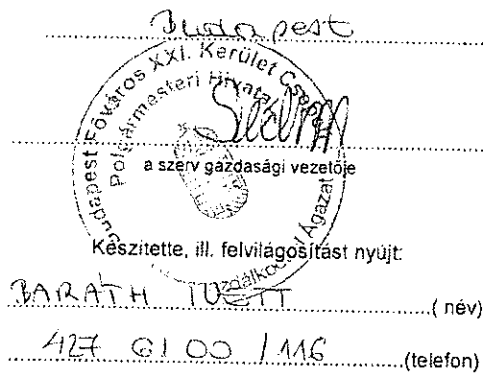 Budapest
Budapest Főváros XXI. Kerület Csepel
Polgármesteri Hivatal
a szerv gazdasági vezetője
Ágazat
Készítette, ill. felvilágosítást nyújt:
BARÁTH IVETT (név)
427 6100 / 116 (telefon)